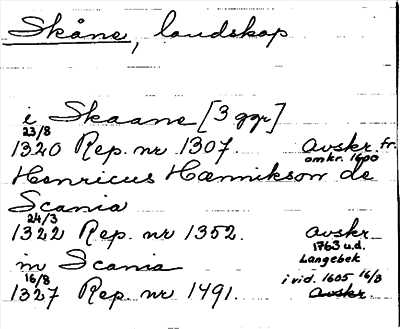 Skåne, landskap
i Skaane [3 ggr]
23/8
1320 Rep. nr 1307. Avskr. fr.
omkr. 1600
Henricus Hænnikson de
Scania
24/3
1322 Rep. nr 1352. Avskr.
1763 u.d.
Langebek
in Scania
16/8
1327 Rep. nr 1491. i vid. 1605 16/3
Avskr.